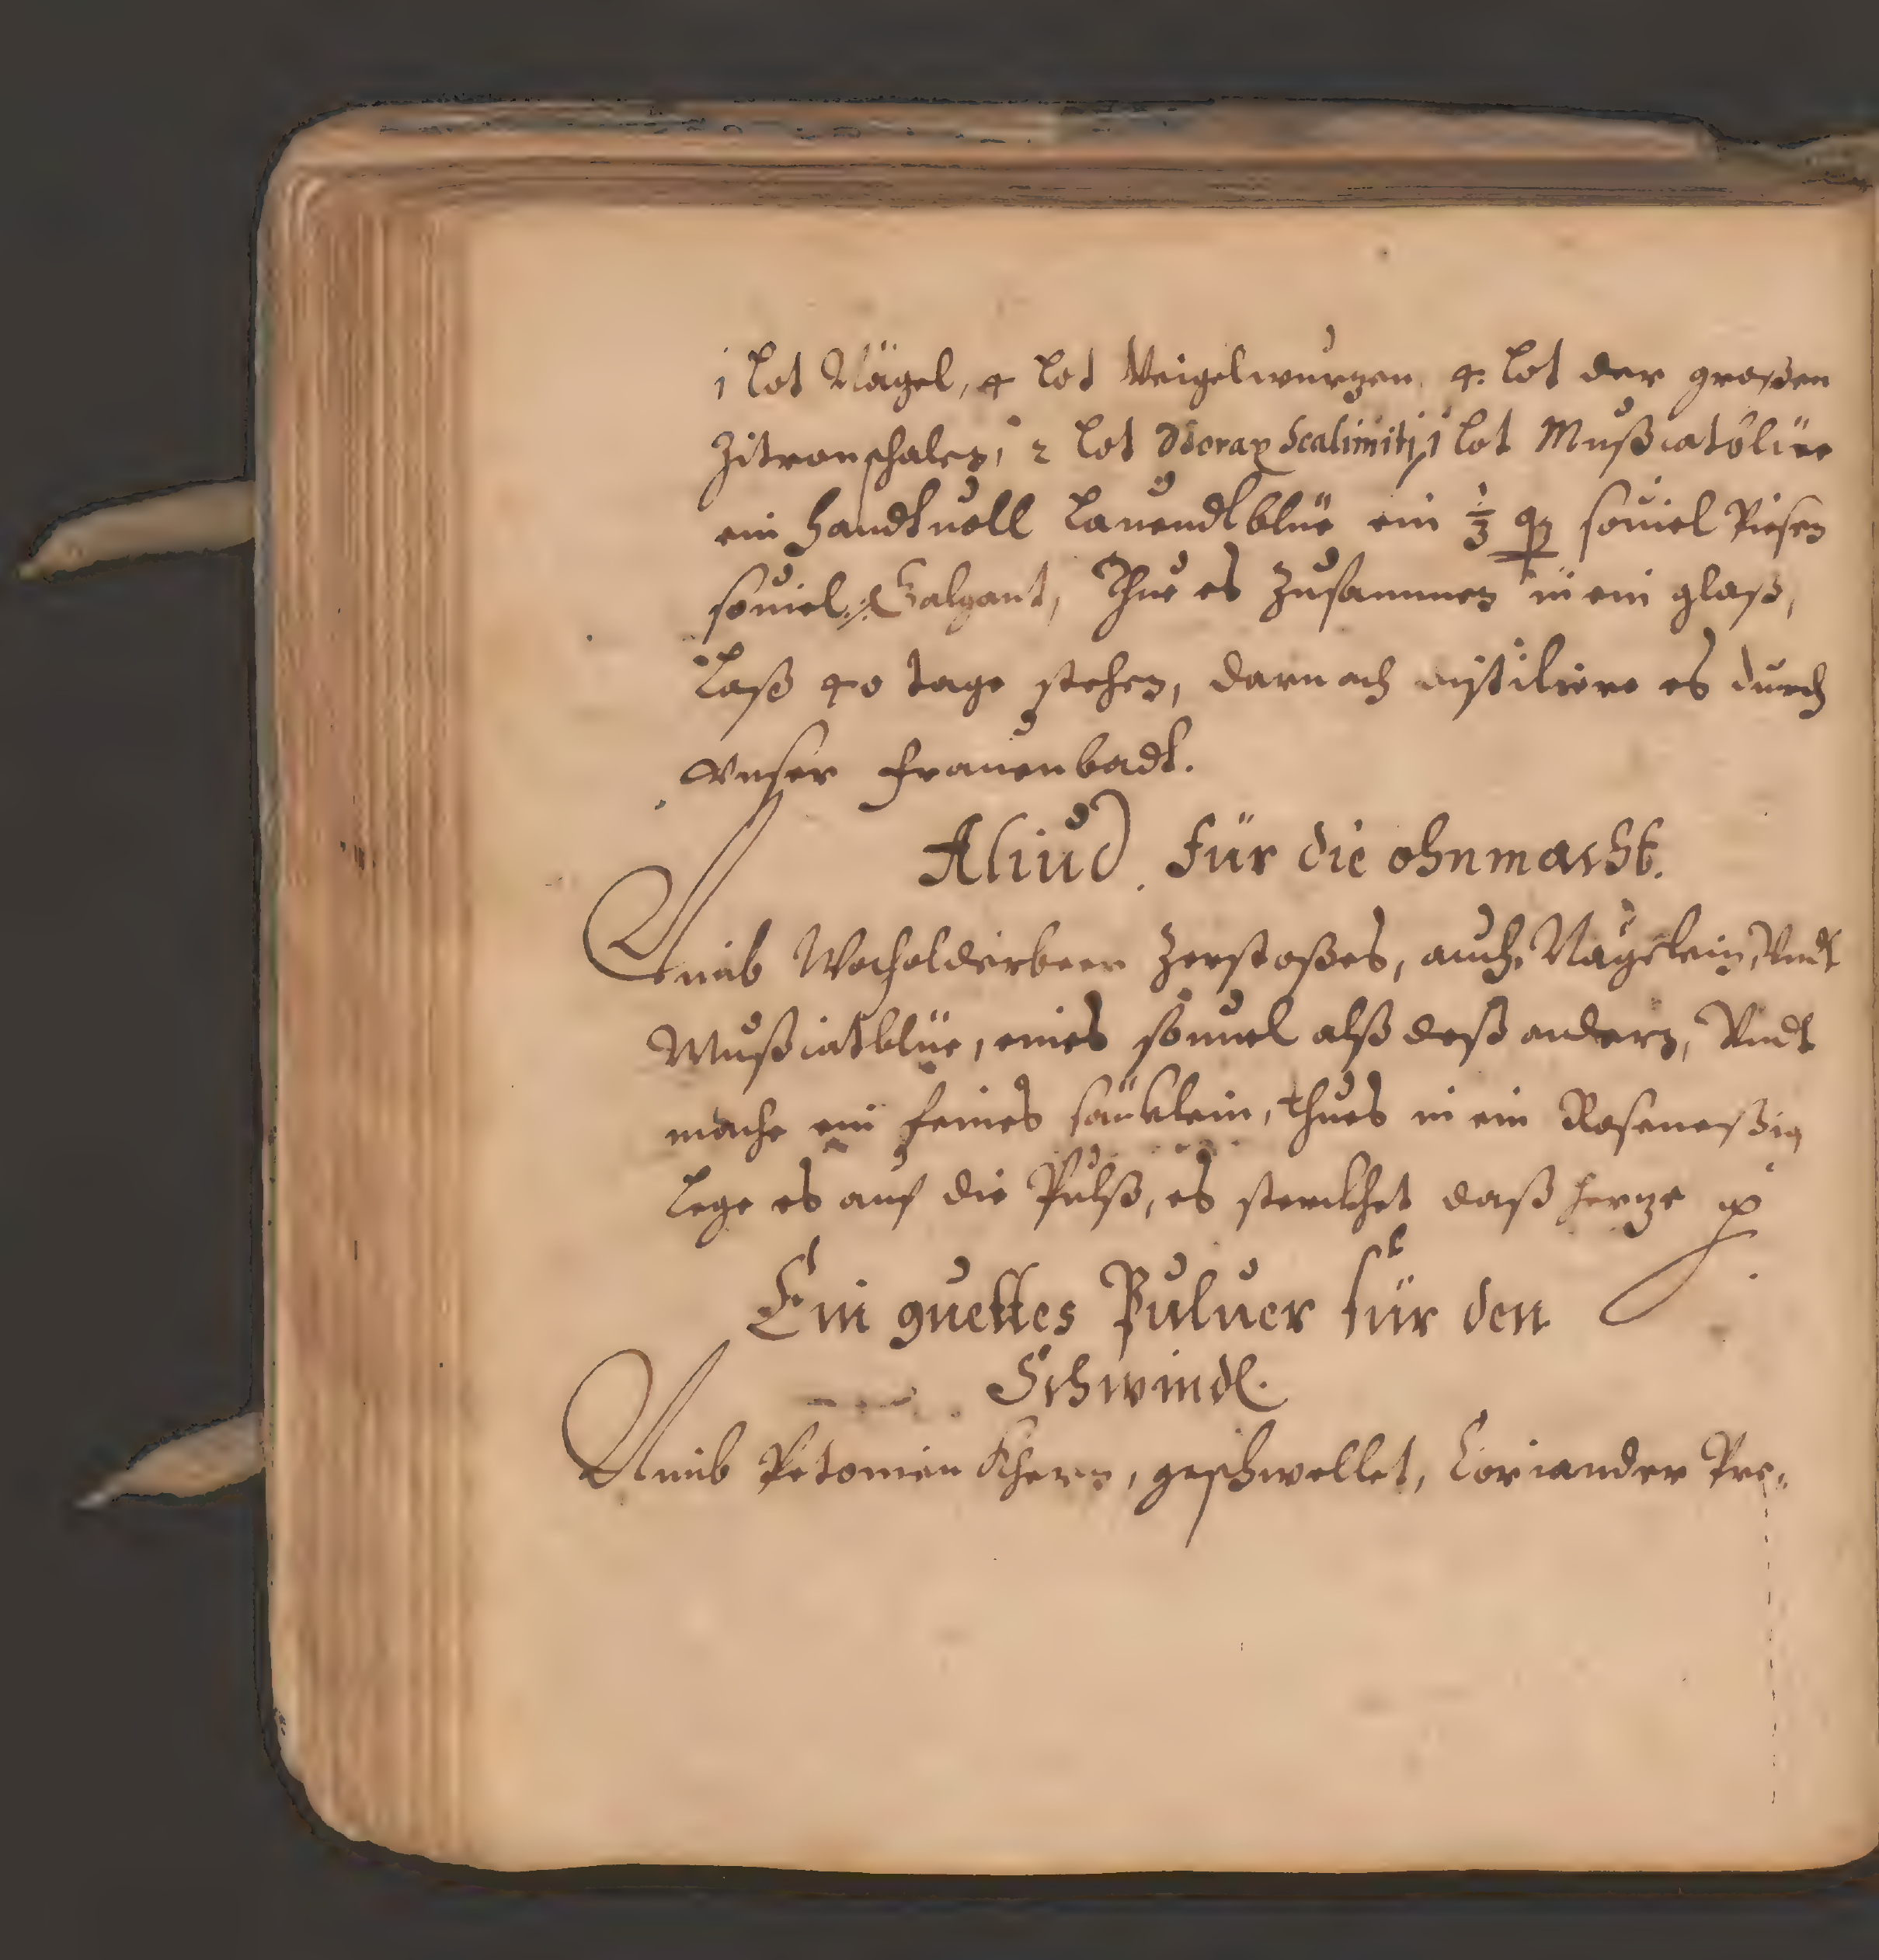 1 lot Nägel, 4 lot Veigelwurzen, 4. lot der großen
Zitronschalen, 2 lot Storax Scalimiti, 1 lot Mußcatblüe
ein handtuoll lauendlblüe ein ⅓ souiel Piesen
souiel Galgant, Thue es zusammen in ein glaß,
laß 40 tage stehen, darnach distiliere es durch
vnser frauenbadt.
Aliud. für die ohnmacht.
Nimb Wacholderbeer zerstoßes, auch Nägelein, Vndt
Mußcatblüe, eines souiel alß deß andern, Vndt
mache ein feines säcklein, thues in ein Rosenessig
lege es auf die Pulß, es sterckhet daß herze
Ein guettes Puluer für den
Schwindl.
Nimb Petonien Khern, geschwellet, Coriander Pre: